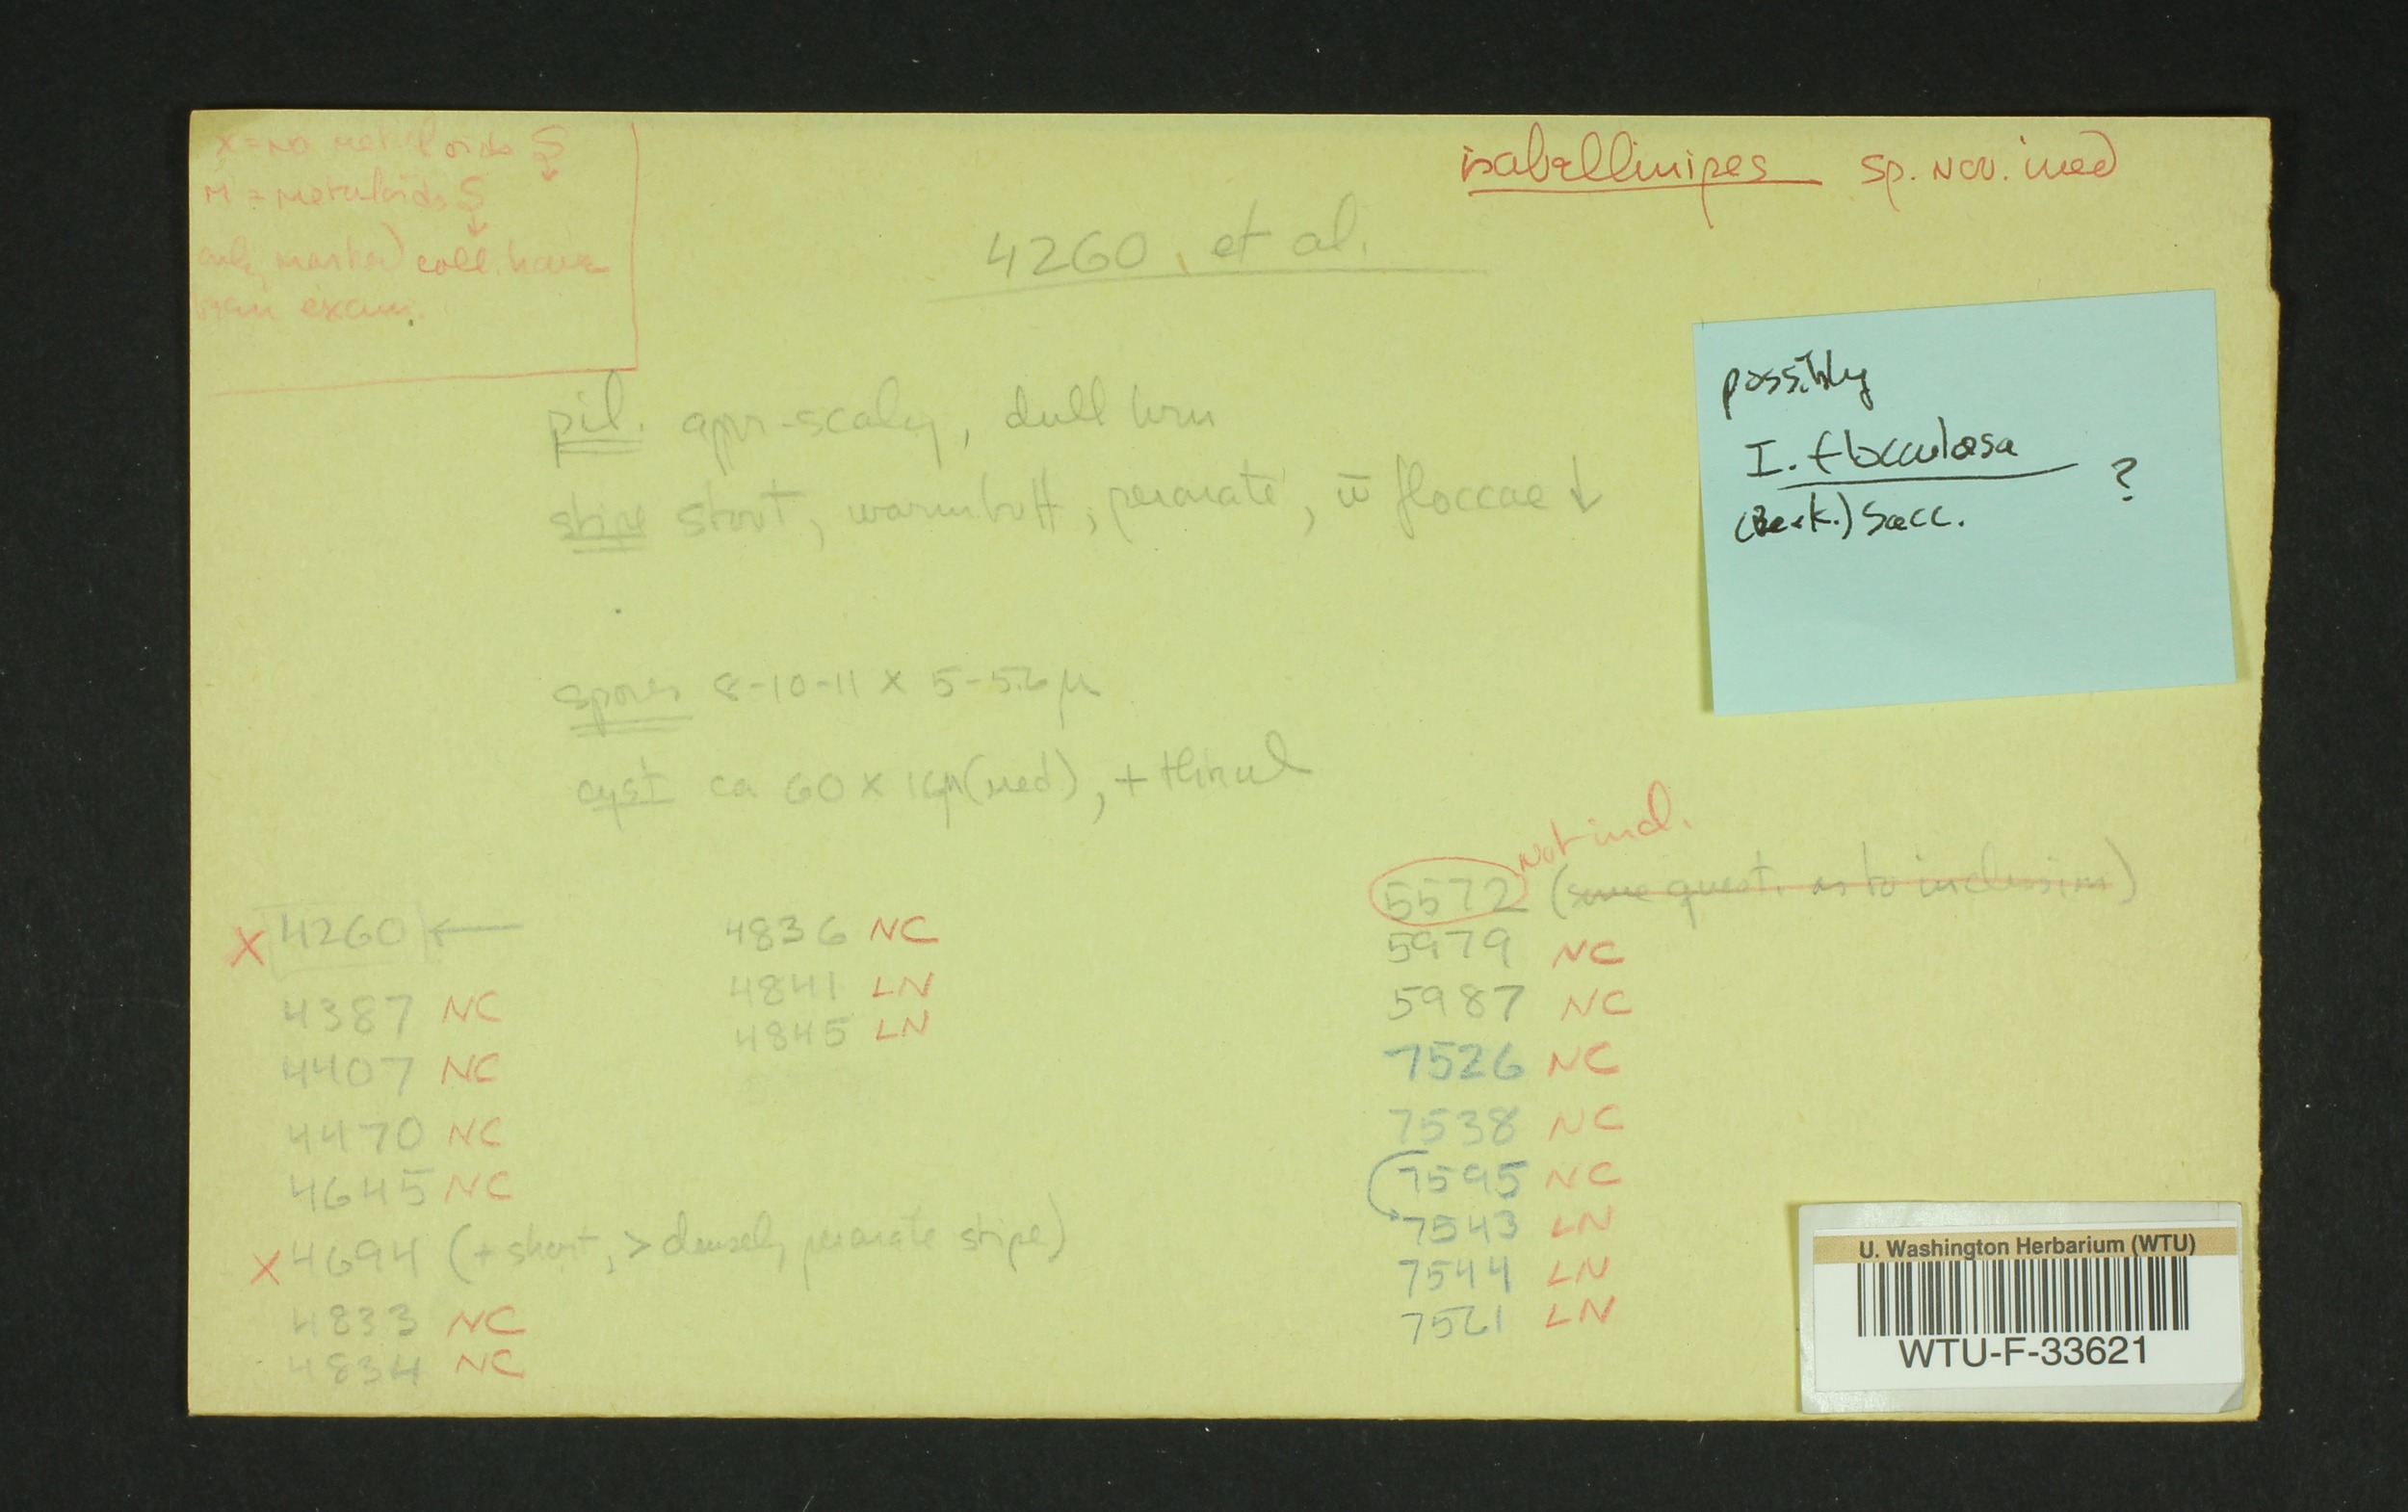 X = no metuloids S↓
M = metuloids S↓
only marked coll. have
been exam.
isabellinipes sp. nov. ined
4260, et al.
possibly
I. flocculosa ?
(Berk.) Sacc.
pil. appr-scaly, dull brn
stipe stout, warm buff, peronate, w̄ floccae ↓
spores 8-10-11 x 5-5.6 μ
cyst ca 60 x 16μ (med), + thinwl
X 4260 ←
4387 NC
4407 NC
4470 NC
4645 NC
X 4694 (+ short, > densely peronate stipe)
4833 NC
4834 NC
4836 NC
4841 LN
4845 LN
5572 Not incl. (some quest. as to inclusion)
5979 NC
5987 NC
7526 NC
7538 NC
7595 NC
7543 LN
7544 LN
7521 LN
U. Washington Herbarium (WTU)
WTU-F-33621